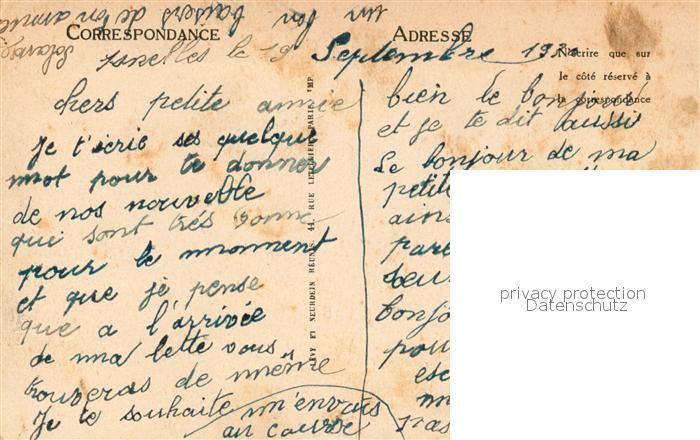 un bon baisers de ton amie
CORRESPONDANCE
ADRESSE
N'écrire que sur
le côté réservé à
la correspondance
Ixelles le 19 Septembre
chers petite amie
Je t'écrie ses quelque
mot pour te donner
de nos nouvelle
qui sont trés bonne
pour le moment
et que je pense
que a l'arrivée
de ma lette vous
trouveras de même
Je te souhaite
bien le bonjour
et je te dit aussi
le bonjour de ma
petite
bonjo
pou
m'envais
au course
pas
LÉVY ET NEURDEIN RÉUNIS, 44, RUE LETELLIER, PARIS. IMP.
privacy protection
Datenschutz